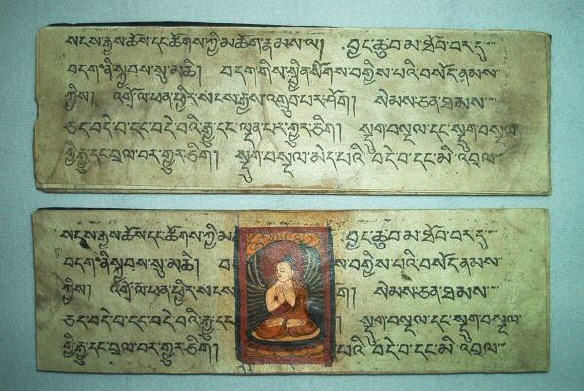 སངས་རྒྱས་ཆོས་དང་ཚོགས་ཀྱི་མཆོག་རྣམས་ལ། བྱང་ཆུབ་མ་ཐོབ་བར་དུ
བདག་ནི་སྐྱབས་སུ་མཆི། བདག་གིས་སྦྱིན་སོགས་བགྱིས་པའི་བསོད་ནམས
ཀྱིས། འགྲོ་ལ་ཕན་ཕྱིར་སངས་རྒྱས་འགྲུབ་པར་ཤོག། སེམས་ཅན་ཐམས
ཅད་བདེ་བ་དང་བདེ་བའི་རྒྱུ་དང་ལྡན་པར་གྱུར་ཅིག། སྡུག་བསྔལ་དང་སྡུག་བསྔལ
གྱི་རྒྱུ་དང་བྲལ་བར་གྱུར་ཅིག། སྡུག་བསྔལ་མེད་པའི་བདེ་བ་དང་མི་འབྲལ
སངས་རྒྱས་ཆོས་དང་ཚོགས་ཀྱི་མ བྱང་ཆུབ་མ་ཐོབ་བར་དུ
བདག་ནི་སྐྱབས་སུ་མཆི། བ ས་བགྱིས་པའི་བསོད་ནམས
ཀྱིས། འགྲོ་ལ་ཕན་ཕྱིར་སངས ག། སེམས་ཅན་ཐམས
ཅད་བདེ་བ་དང་བདེ་བའི་རྒྱུ་དང སྡུག་བསྔལ་དང་སྡུག་བསྔལ
གྱི་རྒྱུ་དང་བྲལ་བར་གྱུར་ཅིག། པའི་བདེ་བ་དང་མི་འབྲལ